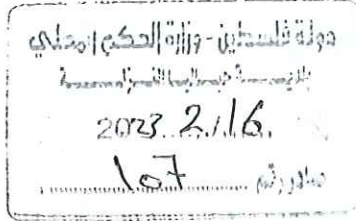 دولة فلسطين - وزارة الحكم المحلي
2023 2/16
صادر رقم 107